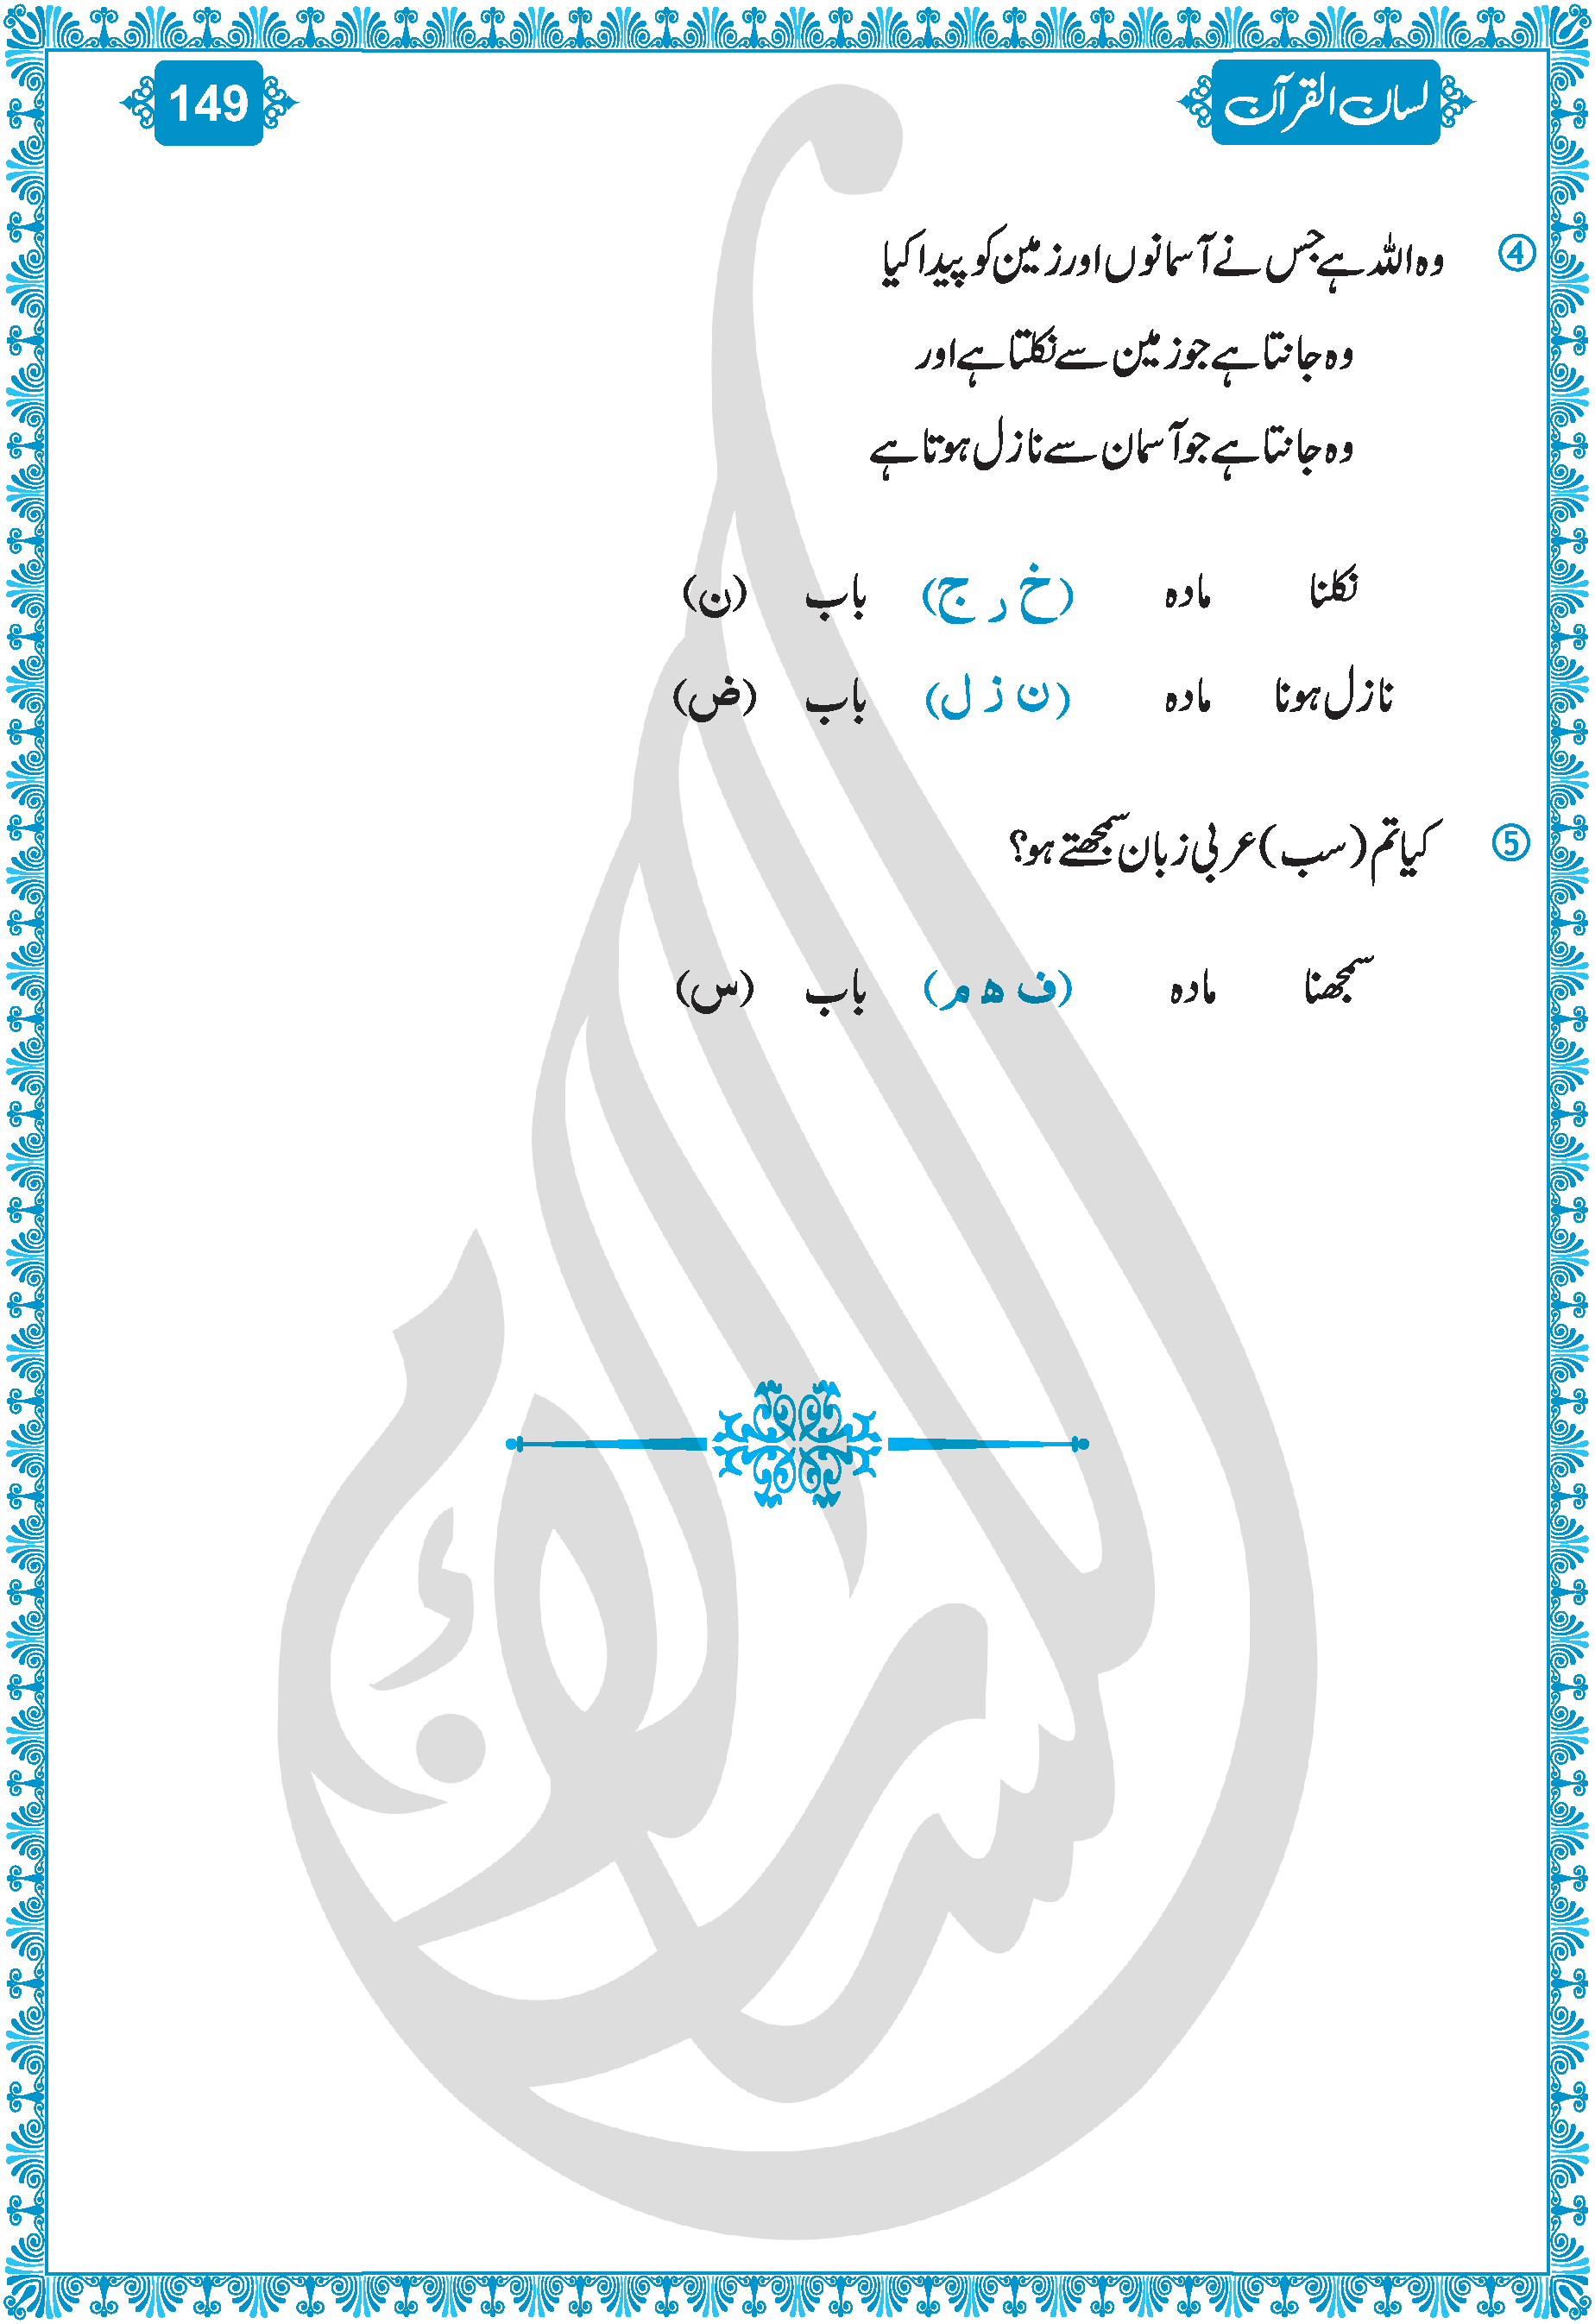 لسان القرآن
149
④ وہ اللہ ہے جس نے آسمانوں اور زمین کو پیدا کیا
وہ جانتا ہے جو زمین سے نکلتا ہے اور
وہ جانتا ہے جو آسمان سے نازل ہوتا ہے
نکلنا مادہ (خ ر ج) باب (ن)
نازل ہونا مادہ (ن ز ل) باب (ض)
⑤ کیا تم (سب) عربی زبان سمجھتے ہو؟
سمجھنا مادہ (ف ھ م) باب (س)